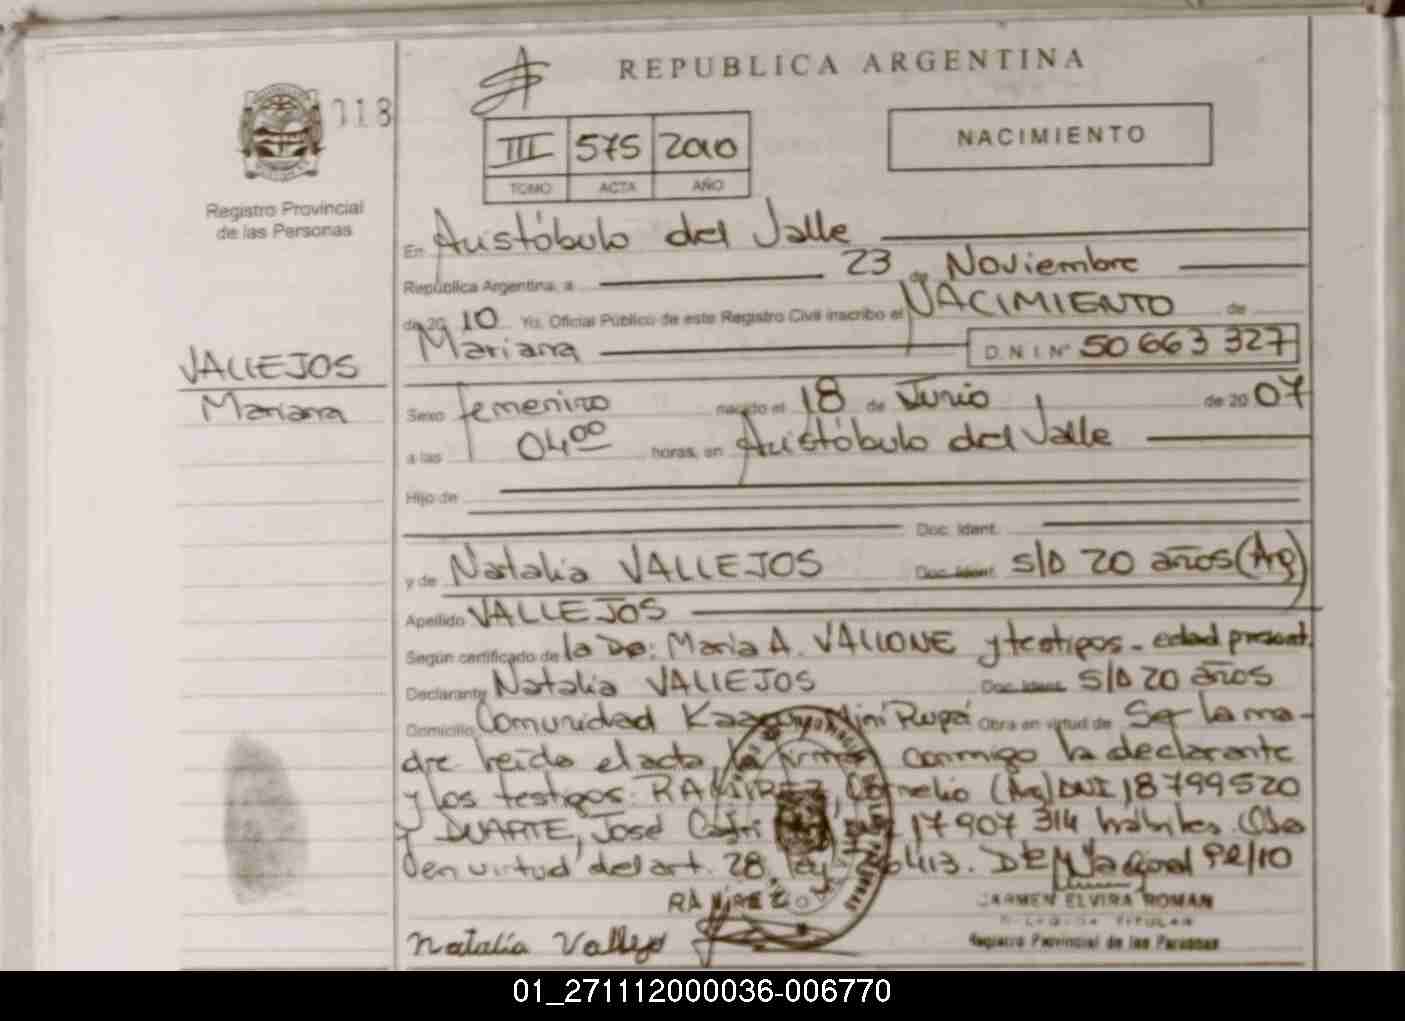 REPUBLICA ARGENTINA
118
III 575 2010
TOMO ACTA AÑO
NACIMIENTO
Registro Provincial
de las Personas
En Aristóbulo del Valle
República Argentina, a 23 de Noviembre
de 20 10 Yo, Oficial Público de este Registro Civil inscribo el NACIMIENTO de
Mariana D.N.I Nº 50 663 327
VALLEJOS
Mariana
Sexo femenino nacido el 18 de Junio de 20 07
a las 04 00 horas, en Aristóbulo del Valle
Hijo de
Doc. Ident.
y de Natalia VALLEJOS Doc. Ident. S/D 20 años (Arg)
Apellido VALLEJOS
Según certificado de la Dra: María A. VALLONE y testigos - edad present.
Declarante Natalia VALLEJOS Doc. Ident. S/D 20 años
Domicilio Comunidad Kaaguy Miní Rupá Obra en virtud de Ser la ma-
dre leída el acta la firman conmigo la declarante
y los testigos: RAMIREZ, Cornelio (Arg) DNI 18 799520
y DUARTE, José 17 907 314 hábiles.
en virtud del art. 28, ley 413. Nacional 92/10
RAMIREZ
CARMEN ELVIRA ROMAN
TITULAR
Registro Provincial de las Personas
Natalia Vallejo
01_271112000036-006770